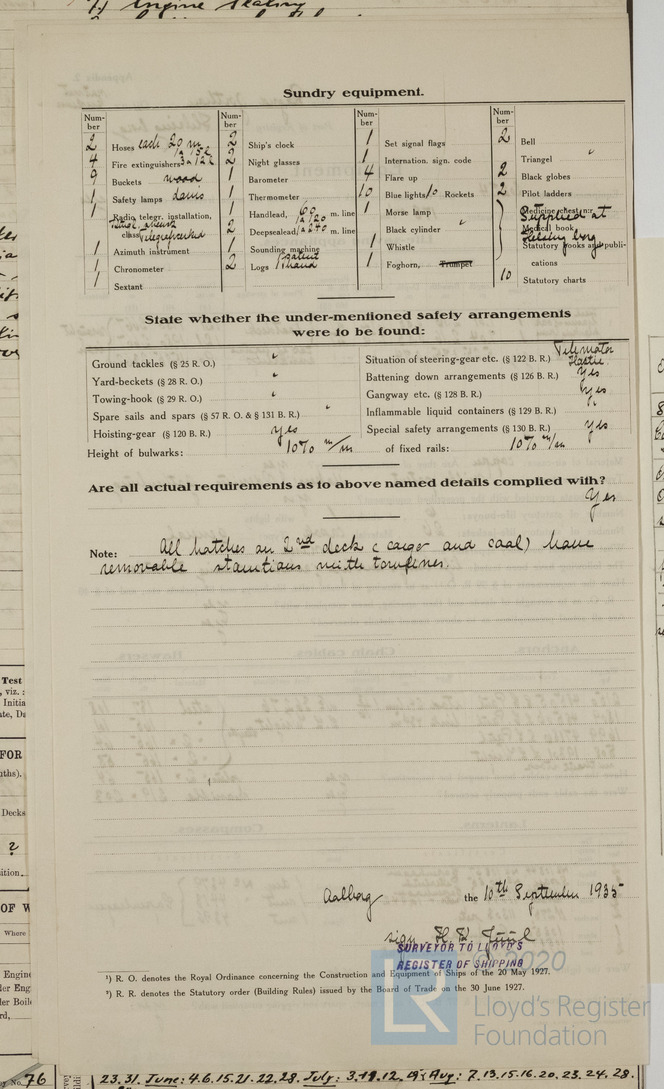 1) Engine Seating
Sundry equipment.
Num-ber
Num-ber
Num-ber
Num-ber
2 Hoses each 20 m
4 Fire extinguishers
9 Buckets wood
1 Safety lamps Davis
1 Radio telegr. installation,
class
1 Azimuth instrument
1 Chronometer
1 Sextant
2 Ship's clock
2 Night glasses
1 Barometer
1 Thermometer
1 Handlead, 60 m. line
2 Deepsealead, m. line
1 Sounding machine
2 Logs Patent
1 Set signal flags
1 Internation. sign. code
4 Flare up
10 Blue lights 10 Rockets
1 Morse lamp
Black cylinder "
1 Whistle
1 Foghorn, Trumpet
2 Bell
Triangel "
2 Black globes
2 Pilot ladders
Medicine chest n:r
Supplied at
Medical book
Statutory books and publi-
cations
10 Statutory charts
State whether the under-mentioned safety arrangements
were to be found:
Ground tackles (§ 25 R. O.) "
Yard-beckets (§ 28 R. O.) "
Towing-hook (§ 29 R. O.) "
Spare sails and spars (§ 57 R. O. & § 131 B. R.) "
Hoisting-gear (§ 120 B. R.) yes
Situation of steering-gear etc. (§ 122 B. R.) Telemator
Battening down arrangements (§ 126 B. R.) yes
Gangway etc. (§ 128 B. R.) yes
Inflammable liquid containers (§ 129 B. R.)
Special safety arrangements (§ 130 B. R.) yes
Height of bulwarks: 1070 m/m of fixed rails: 1070 m/m
Are all actual requirements as to above named details complied with?
Yes
Note: All hatches on 2nd deck (cargo and coal) have
removable
Aalborg the 10th September 1935
sign. H.
SURVEYOR TO LLOYD'S
REGISTER OF SHIPPING
¹) R. O. denotes the Royal Ordinance concerning the Construction and Equipment of Ships of the 20 May 1927.
²) R. R. denotes the Statutory order (Building Rules) issued by the Board of Trade on the 30 June 1927.
2020
LR
Lloyd's Register
Foundation
Test
, viz. :
Initia
FOR
Decks
?
ition
OF W
Where
Engine
ler Eng
ler Boil
No. 76
23.31. June: 4.6.15.21.22.28. July: Aug: 7.13.15.16.20.23.24.28.